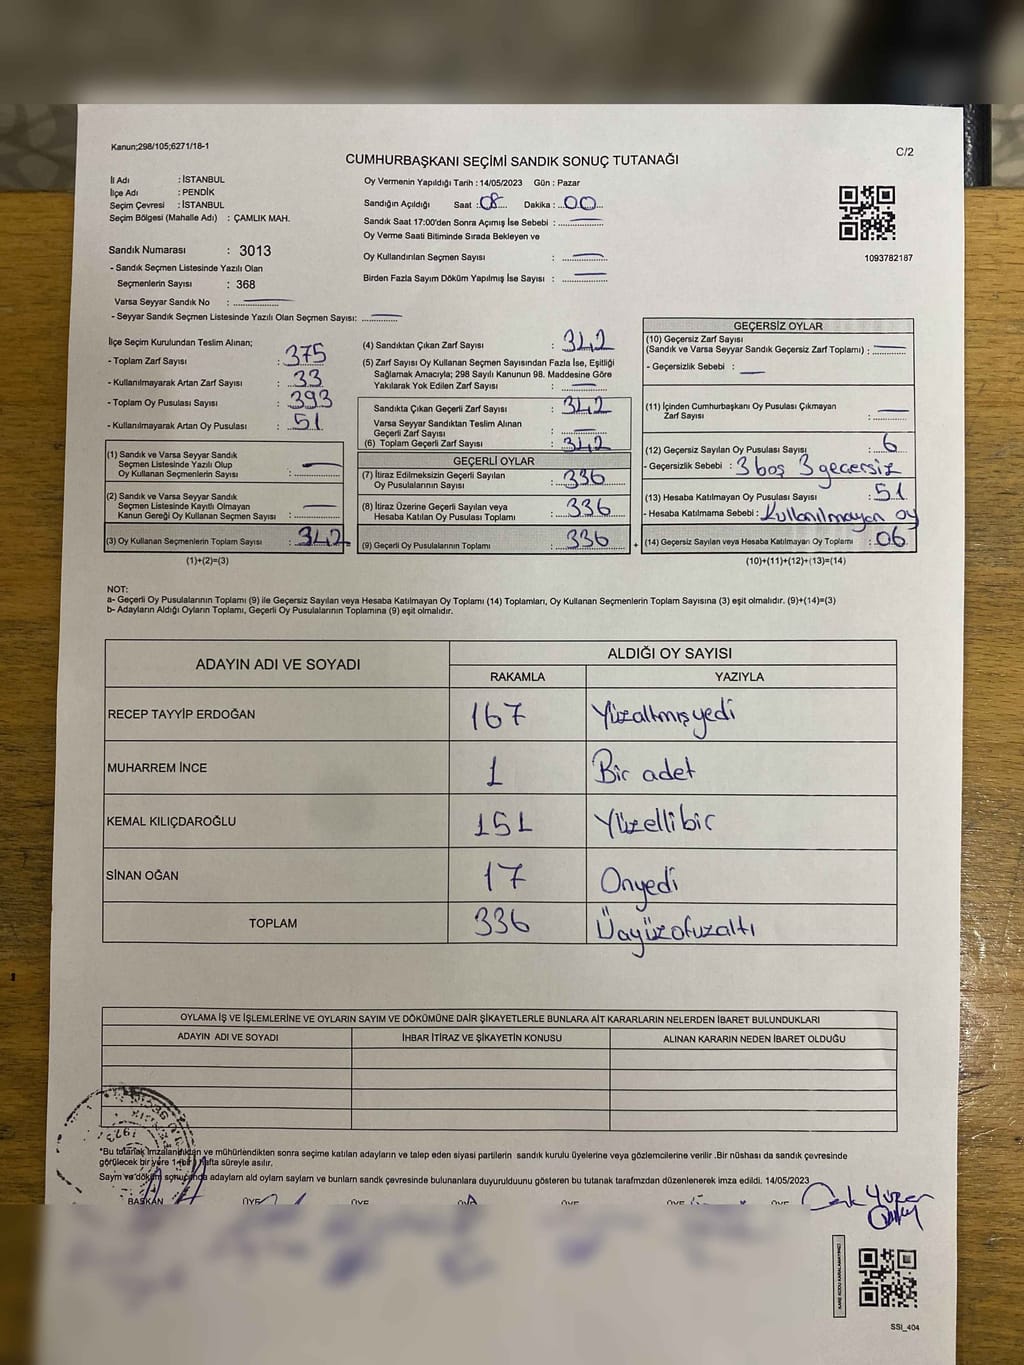 Kanun;298/105;6271/18-1
C/2
CUMHURBAŞKANI SEÇİMİ SANDIK SONUÇ TUTANAĞI
İl Adı : İSTANBUL
İlçe Adı : PENDİK
Seçim Çevresi : İSTANBUL
Seçim Bölgesi (Mahalle Adı) : ÇAMLIK MAH.
Sandık Numarası : 3013
- Sandık Seçmen Listesinde Yazılı Olan
Seçmenlerin Sayısı : 368
Varsa Seyyar Sandık No :
- Seyyar Sandık Seçmen Listesinde Yazılı Olan Seçmen Sayısı:
Oy Vermenin Yapıldığı Tarih : 14/05/2023 Gün : Pazar
Sandığın Açıldığı Saat : 08 Dakika : 00
Sandık Saat 17:00'den Sonra Açımış İse Sebebi :
Oy Verme Saati Bitiminde Sırada Bekleyen ve
Oy Kullandırılan Seçmen Sayısı :
Birden Fazla Sayım Döküm Yapılmış İse Sayısı :
1093782187
İlçe Seçim Kurulundan Teslim Alınan;
- Toplam Zarf Sayısı : 375
- Kullanılmayarak Artan Zarf Sayısı : 33
- Toplam Oy Pusulası Sayısı : 393
- Kullanılmayarak Artan Oy Pusulası : 51
(1) Sandık ve Varsa Seyyar Sandık
Seçmen Listesinde Yazılı Olup
Oy Kullanan Seçmenlerin Sayısı :
(2) Sandık ve Varsa Seyyar Sandık
Seçmen Listesinde Kayıtlı Olmayan
Kanun Gereği Oy Kullanan Seçmen Sayısı :
(3) Oy Kullanan Seçmenlerin Toplam Sayısı : 342
(1)+(2)=(3)
(4) Sandıktan Çıkan Zarf Sayısı : 342
(5) Zarf Sayısı Oy Kullanan Seçmen Sayısından Fazla İse, Eşitliği
Sağlamak Amacıyla; 298 Sayılı Kanunun 98. Maddesine Göre
Yakılarak Yok Edilen Zarf Sayısı :
Sandıkta Çıkan Geçerli Zarf Sayısı : 342
Varsa Seyyar Sandıktan Teslim Alınan
Geçerli Zarf Sayısı :
(6) Toplam Geçerli Zarf Sayısı : 342
GEÇERLİ OYLAR
(7) İtiraz Edilmeksizin Geçerli Sayılan
Oy Pusulalarının Sayısı : 336
(8) İtiraz Üzerine Geçerli Sayılan veya
Hesaba Katılan Oy Pusulalarının Sayısı : 336
(9) Geçerli Oy Pusulalarının Toplamı : 336
+
GEÇERSİZ OYLAR
(10) Geçersiz Zarf Sayısı
(Sandık ve Varsa Seyyar Sandık Geçersiz Zarf Toplamı) :
- Geçersizlik Sebebi :
(11) İçinden Cumhurbaşkanı Oy Pusulası Çıkmayan
Zarf Sayısı :
(12) Geçersiz Sayılan Oy Pusulası Sayısı : 6
- Geçersizlik Sebebi : 3 boş 3 geçersiz
(13) Hesaba Katılmayan Oy Pusulası Sayısı : 51
- Hesaba Katılmama Sebebi : Kullanılmayan oy
(14) Geçersiz Sayılan veya Hesaba Katılmayan Oy Toplamı : 06
(10)+(11)+(12)+(13)=(14)
NOT:
a- Geçerli Oy Pusulalarının Toplamı (9) ile Geçersiz Sayılan veya Hesaba Katılmayan Oy Toplamı (14) Toplamları, Oy Kullanan Seçmenlerin Toplam Sayısına (3) eşit olmalıdır. (9)+(14)=(3)
b- Adayların Aldığı Oyların Toplamı, Geçerli Oy Pusulalarının Toplamına (9) eşit olmalıdır.
ADAYIN ADI VE SOYADI
ALDIĞI OY SAYISI
RAKAMLA YAZIYLA
RECEP TAYYİP ERDOĞAN 167 Yüzaltmışyedi
MUHARREM İNCE 1 Bir adet
KEMAL KILIÇDAROĞLU 151 Yüzellibir
SİNAN OĞAN 17 Onyedi
TOPLAM 336 Üçyüzotuzaltı
OYLAMA İŞ VE İŞLEMLERİNE VE OYLARIN SAYIM VE DÖKÜMÜNE DAİR ŞİKAYETLERLE BUNLARA AİT KARARLARIN NELERDEN İBARET BULUNDUKLARI
ADAYIN ADI VE SOYADI İHBAR İTİRAZ VE ŞİKAYETİN KONUSU ALINAN KARARIN NEDEN İBARET OLDUĞU
*Bu tutanak imzalandıktan ve mühürlendikten sonra seçime katılan adayların ve talep eden siyasi partilerin sandık kurulu üyelerine veya gözlemcilerine verilir .Bir nüshası da sandık çevresinde
görülecek bir yere 1 (bir) hafta süreyle asılır.
Sayım ve döküm sonuçunda adayların ald oyların sayların ve bunların sandık çevresinde bulunanlara duyurulduunu gösteren bu tutanak tarafmzdan düzenlenerek imza edildi. 14/05/2023
BAŞKAN ÜYE ÜYE ÜYE ÜYE ÜYE
KARE KODU KARALAMAYINIZ!
SSI_404